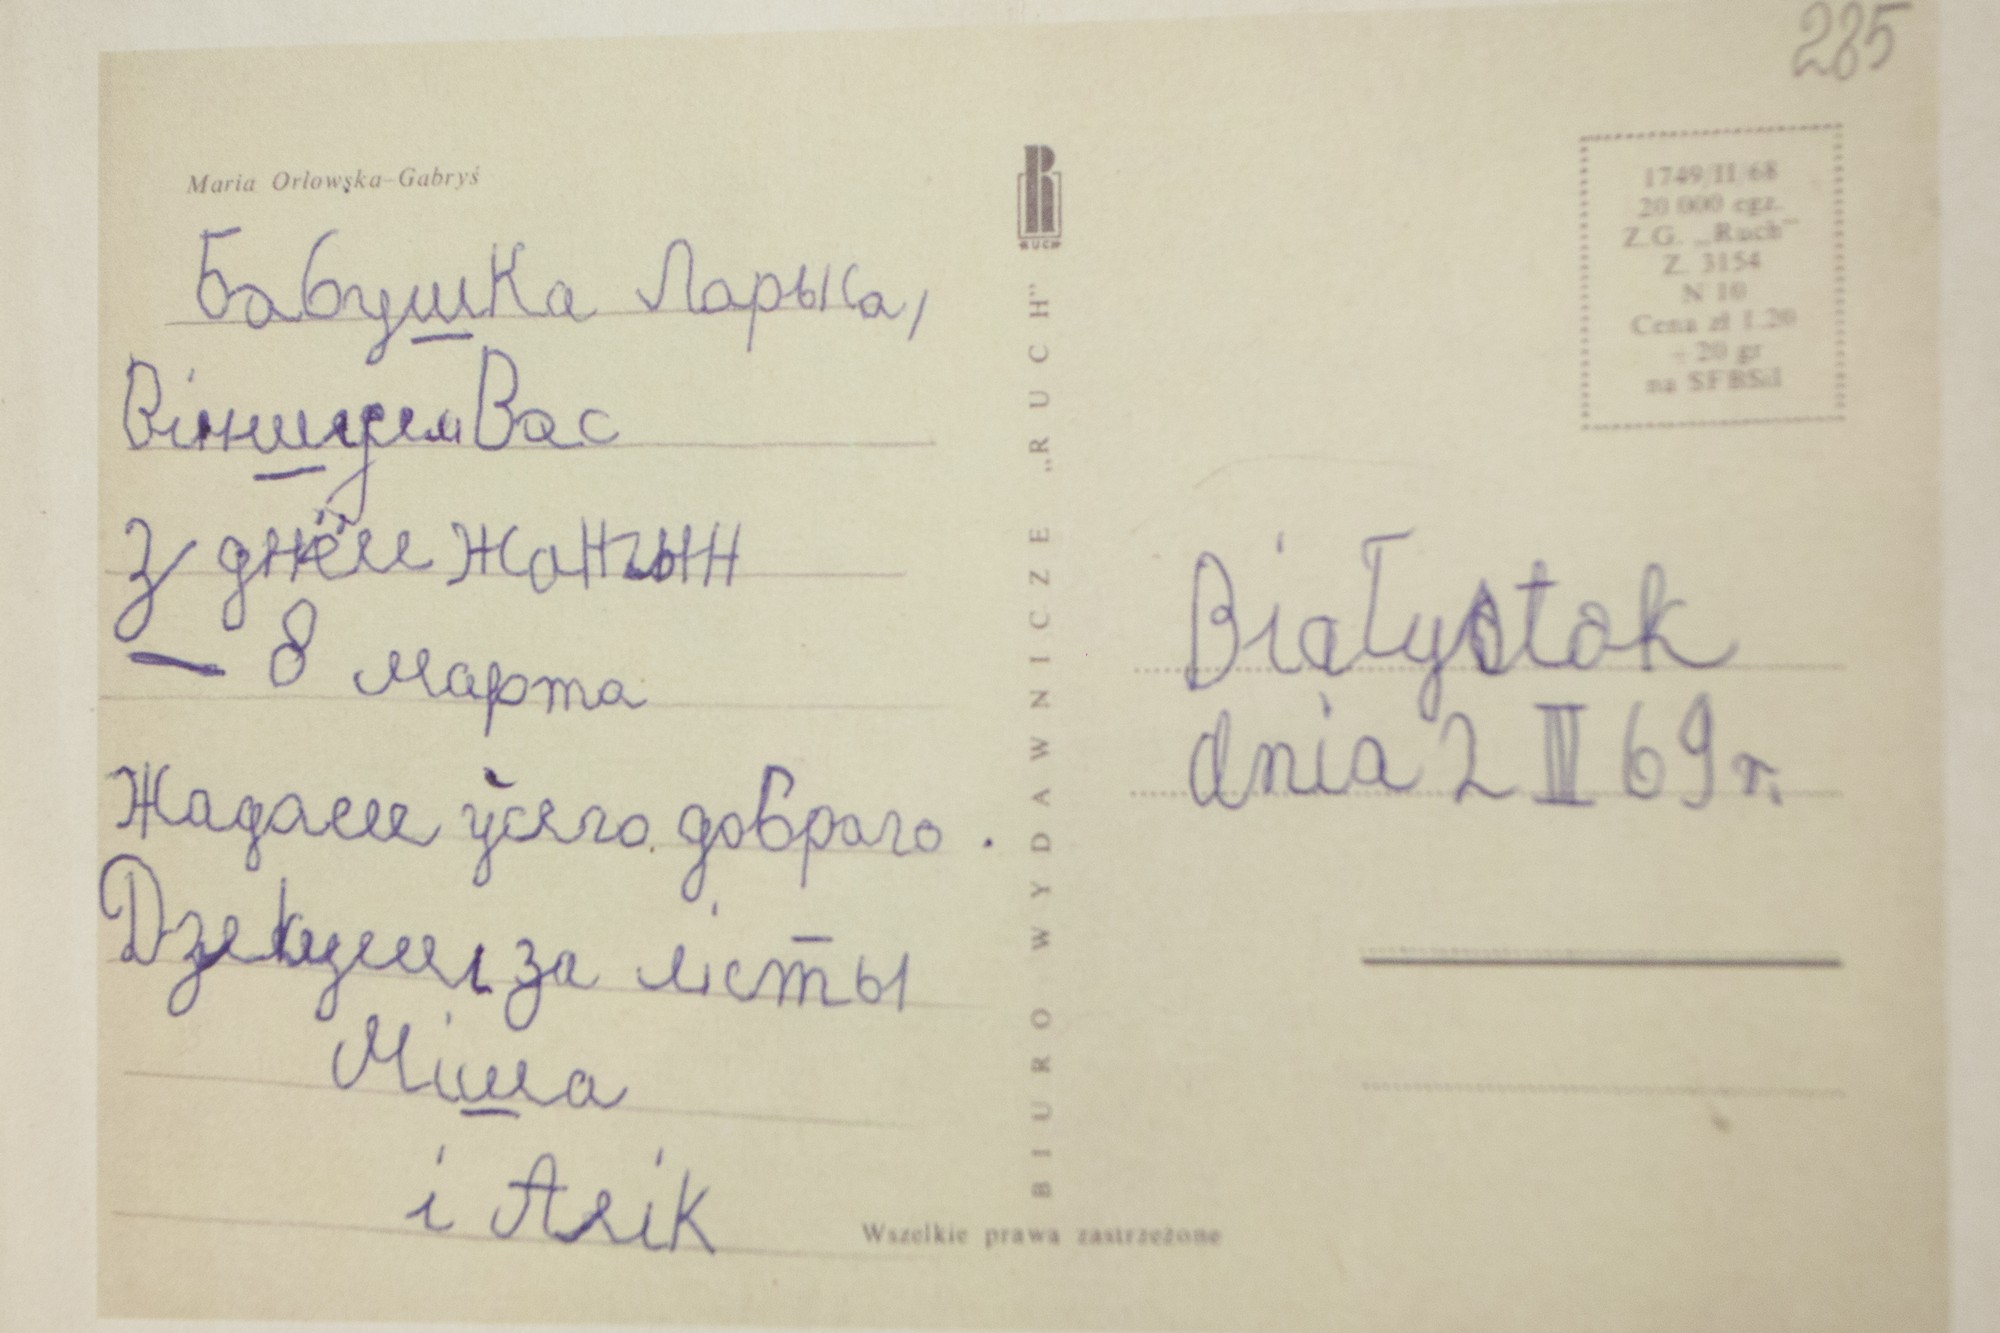 285
Maria Orłowska-Gabryś
Бабушка Ларыса,
Віншуем Вас
З днём жанчын
— 8 марта
Жадаем ўсяго доброго.
Дзекуем за лісты
Міша
і Алік
RUCH
BIURO WYDAWNICZE „RUCH"
1749/II/68
20 000 egz.
Z.G. „Ruch"
Z. 3154
N 10
Cena zł 1.20
+ 20 gr
na SFBSiI
Białystok
dnia 2 III 69 r.
Wszelkie prawa zastrzeżone